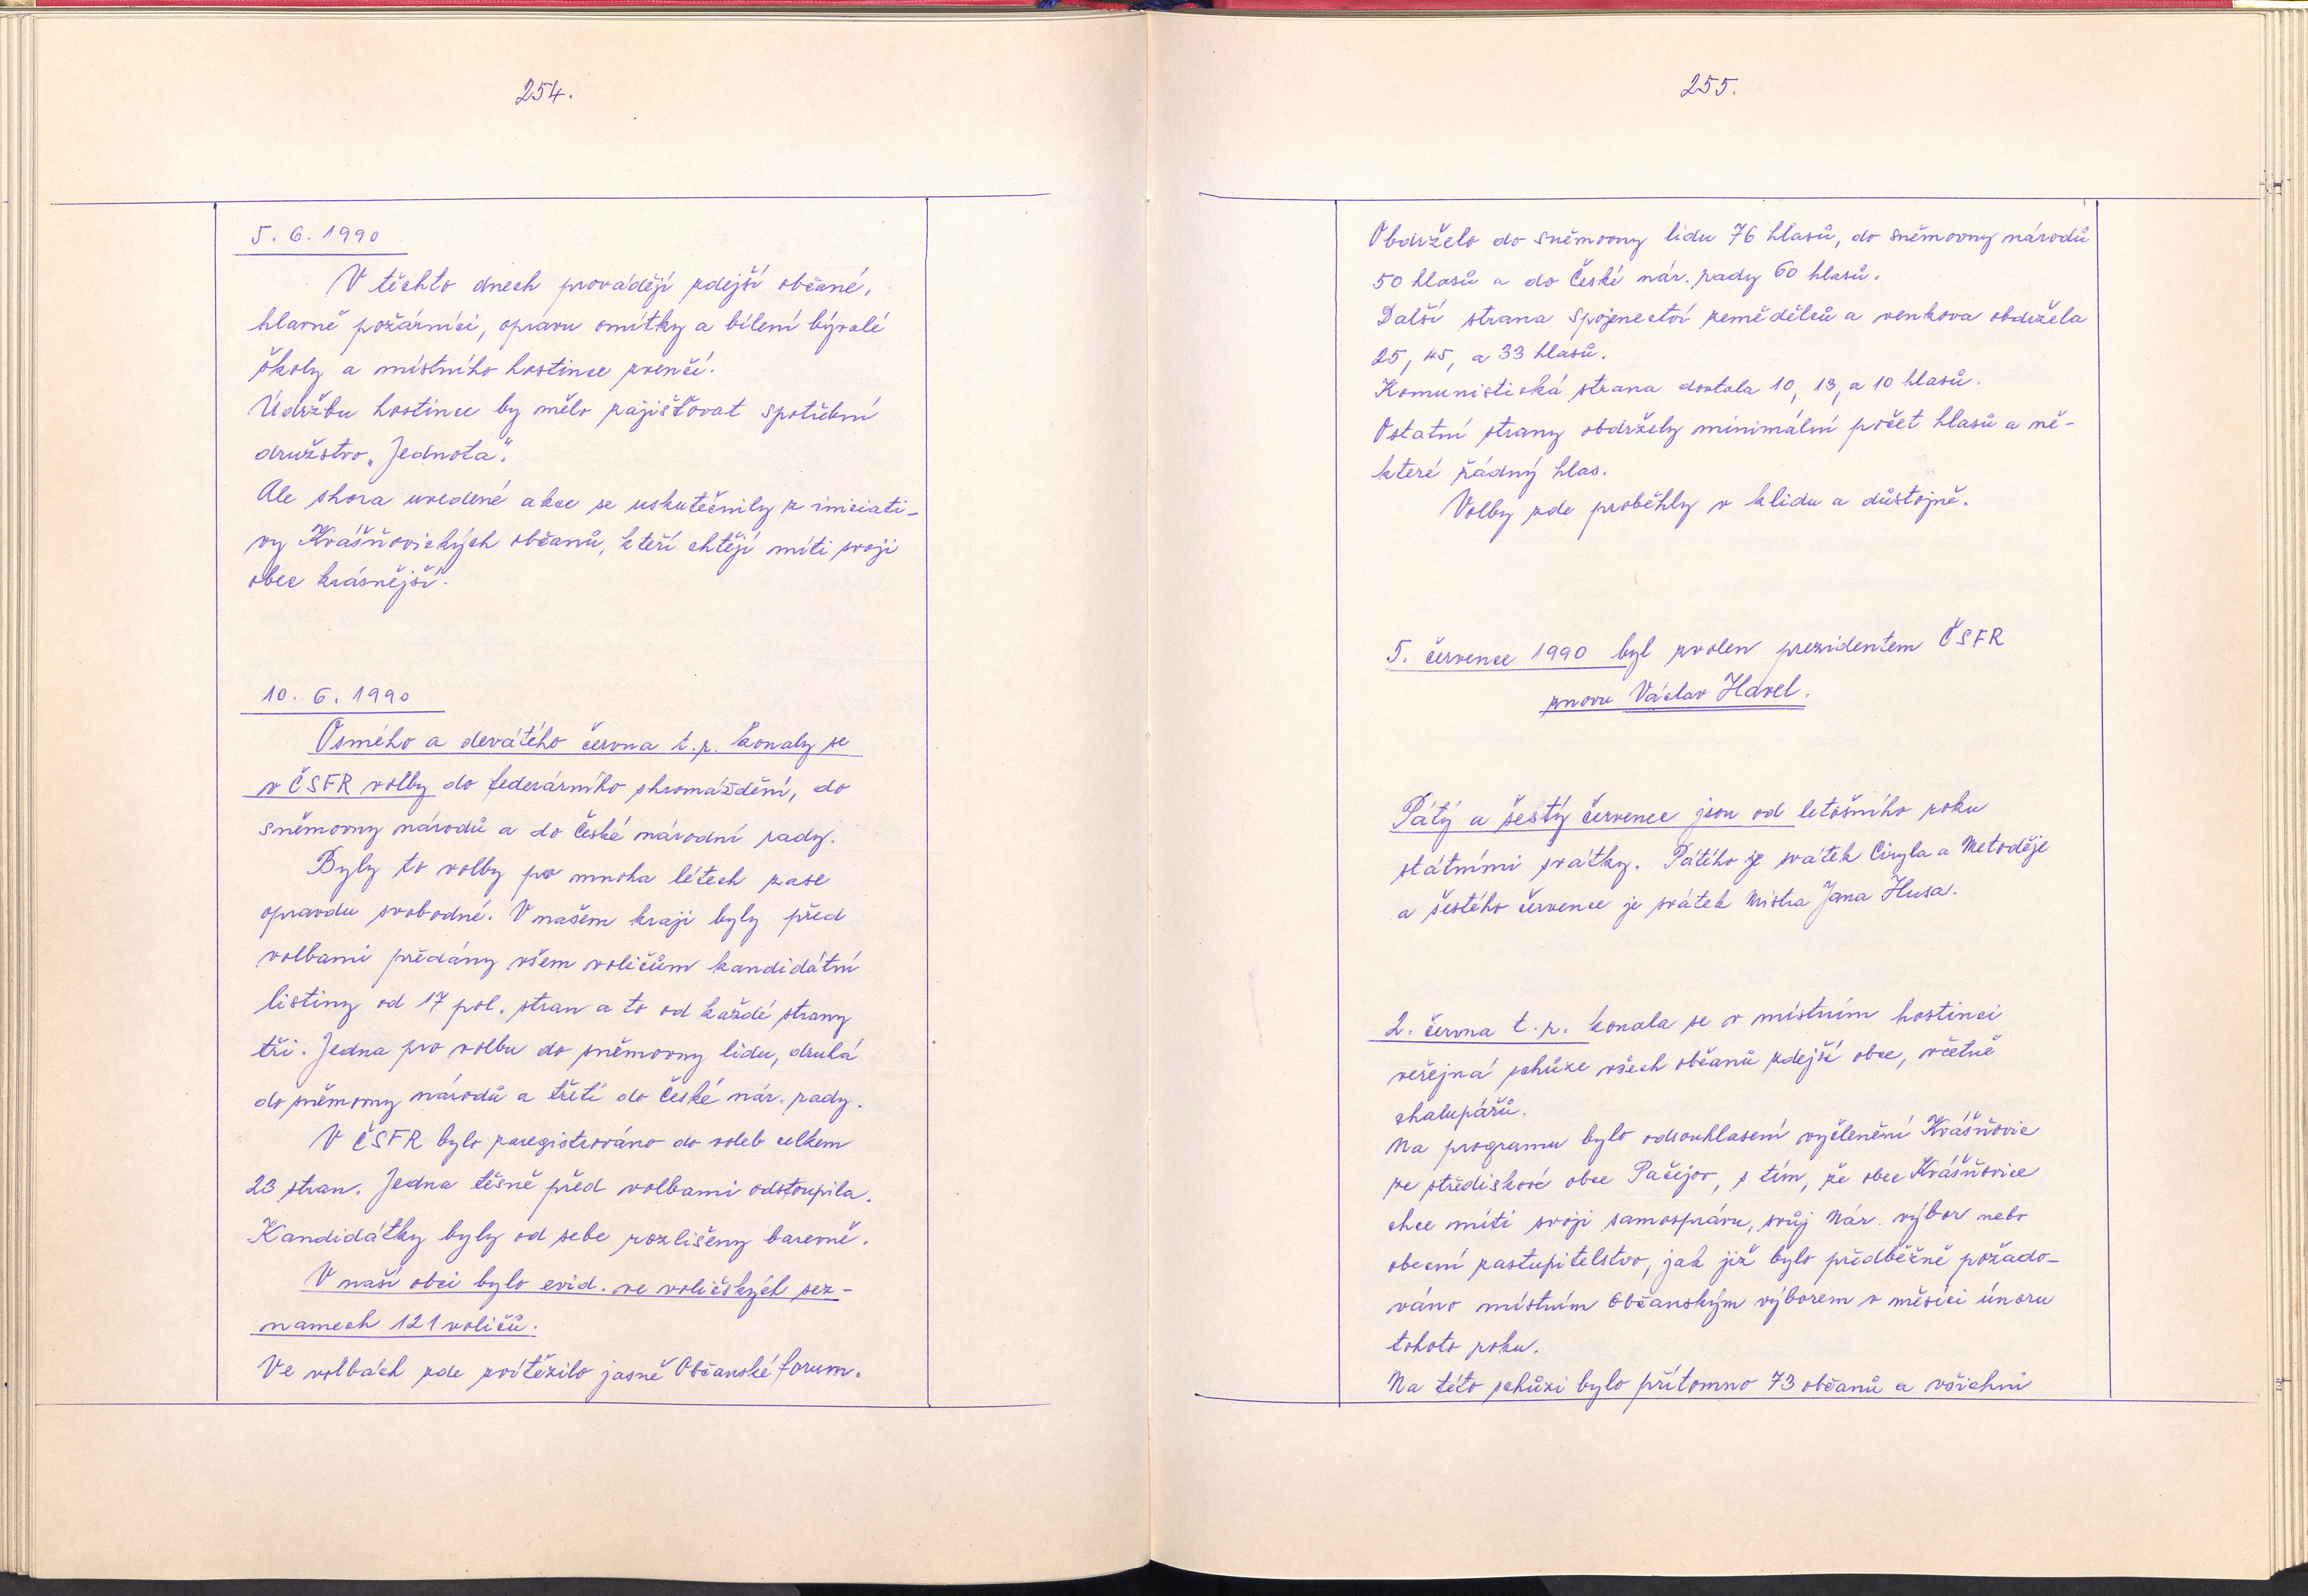 254.
5. 6. 1990
V těchto dnech provádějí zdejší občané,
hlavně požárníci, opravu omítky a bílení bývalé
školy a místního hostince zvenčí.
Údržbu hostince by mělo zajišťovat spotřební
družstvo „Jednota".
Ale shora uvedené akce se uskutečnily z iniciati-
vy Kvášňovických občanů, kteří chtějí míti svoji
obec krásnější.
10. 6. 1990
Osmého a devátého června t.r. konaly se
v ČSFR volby do federárního shromáždění, do
sněmovny národů a do České národní rady.
Byly to volby po mnoha létech zase
opravdu svobodné. V našem kraji byly před
volbami předány všem voličům kandidátní
listiny od 17 pol. stran a to od každé strany
tři. Jedna pro volbu do sněmovny lidu, druhá
do sněmovny národů a třetí do České nár. rady.
V ČSFR bylo zaregistrováno do voleb celkem
23 stran. Jedna těsně před volbami odstoupila.
Kandidátky byly od sebe rozlišeny barevně.
V naší obci bylo evid. ve voličských sez-
namech 121 voličů.
Ve volbách zde zvítězilo jasně Občanské forum.
255.
Obdrželo do sněmovny lidu 76 hlasů, do sněmovny národů
50 hlasů a do České nár. rady 60 hlasů.
Další strana spojenectví zemědělců a venkova obdržela
25, 45, a 33 hlasů.
Komunistická strana dostala 10, 13, a 10 hlasů.
Ostatní strany obdržely minimální počet hlasů a ně-
které žádný hlas.
Volby zde proběhly v klidu a důstojně.
5. července 1990 byl zvolen prezidentem ČSFR
znovu Václav Havel.
Pátý a šestý července jsou od letošního roku
státními svátky. Pátého je svátek Ciryla a Metoděje
a šestého července je svátek Mistra Jana Husa.
2. června t.r. konala se v místním hostinci
veřejná schůze všech občanů zdejší obce, včetně
chalupářů.
Na programu bylo odsouhlasení vyčlenění Kvášňovic
ze střediskové obce Pačejov, s tím, že obec Kvášňovice
chce míti svoji samosprávu, svůj Nár. výbor nebo
obecní zastupitelstvo, jak již bylo předběžně požado-
váno místním Občanským výborem v měsíci únoru
tohoto roku.
Na této schůzi bylo přítomno 73 občanů a všichni